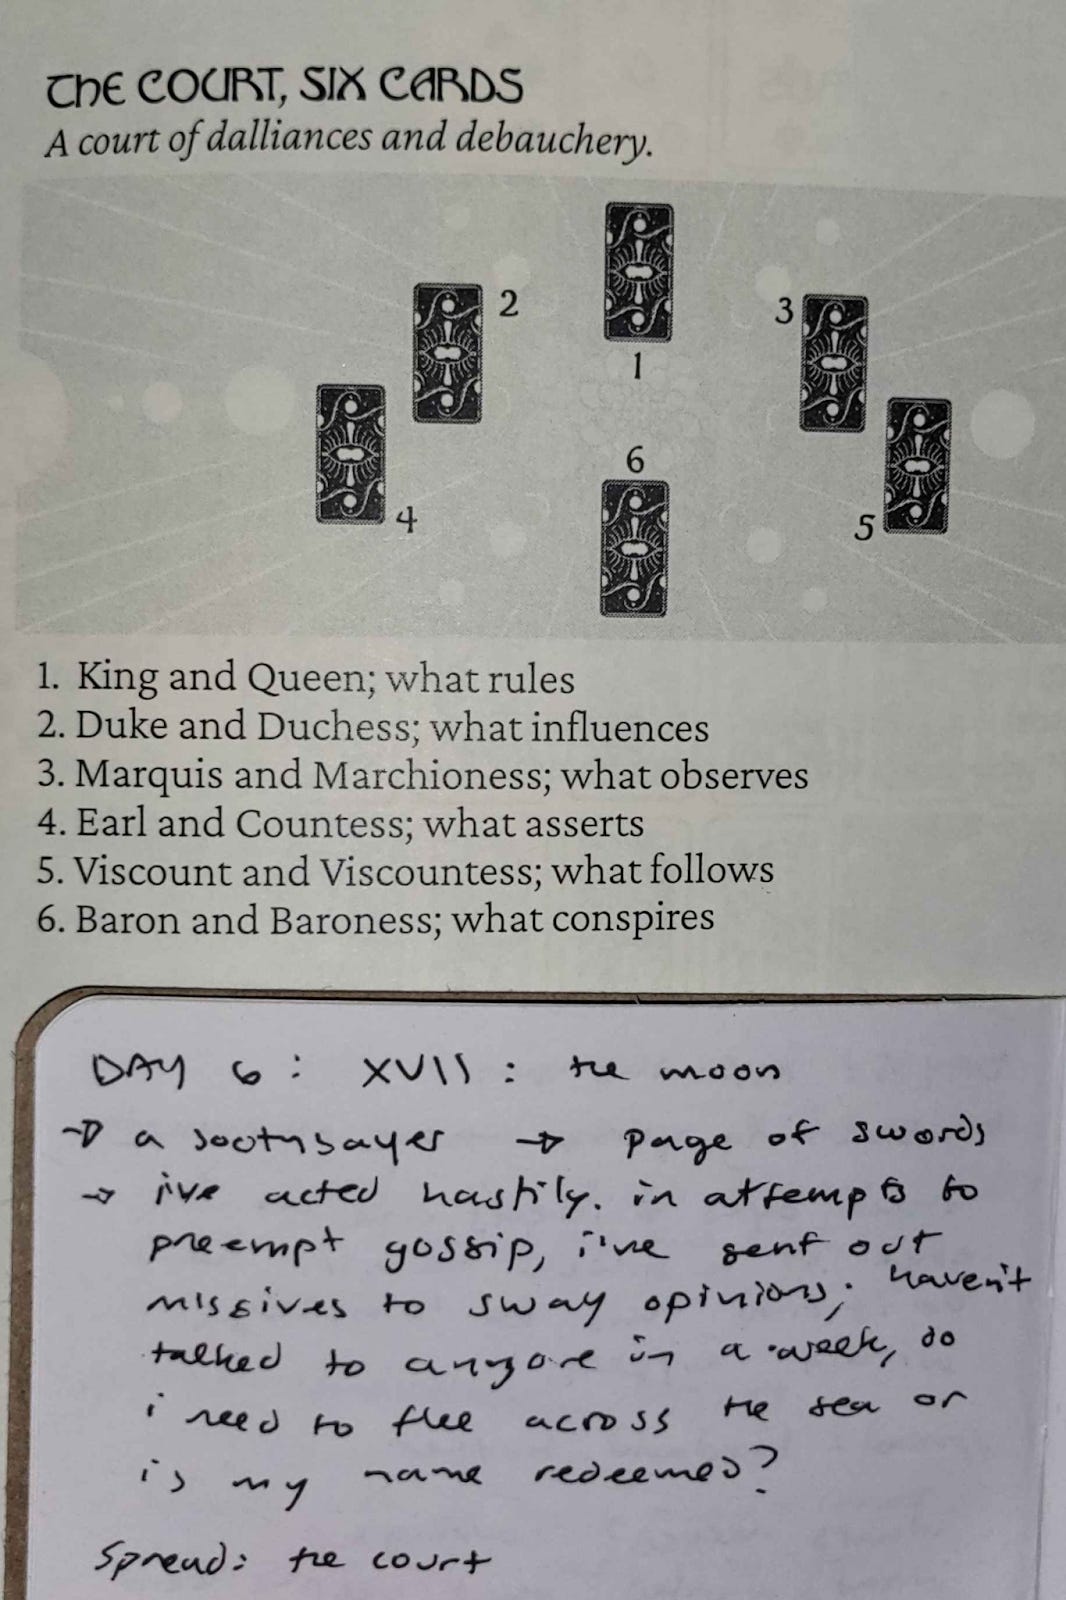 THE COURT, SIX CARDS
A court of dalliances and debauchery.
1
2
3
4
5
6
1. King and Queen; what rules
2. Duke and Duchess; what influences
3. Marquis and Marchioness; what observes
4. Earl and Countess; what asserts
5. Viscount and Viscountess; what follows
6. Baron and Baroness; what conspires
DAY 6: XVII: the moon
→ a soothsayer → page of swords
→ i've acted hastily. in attempts to
preempt gossip, i've sent out
missives to sway opinions; haven't
talked to anyone in a week, do
i need to flee across the sea or
is my name redeemed?
Spread: the court